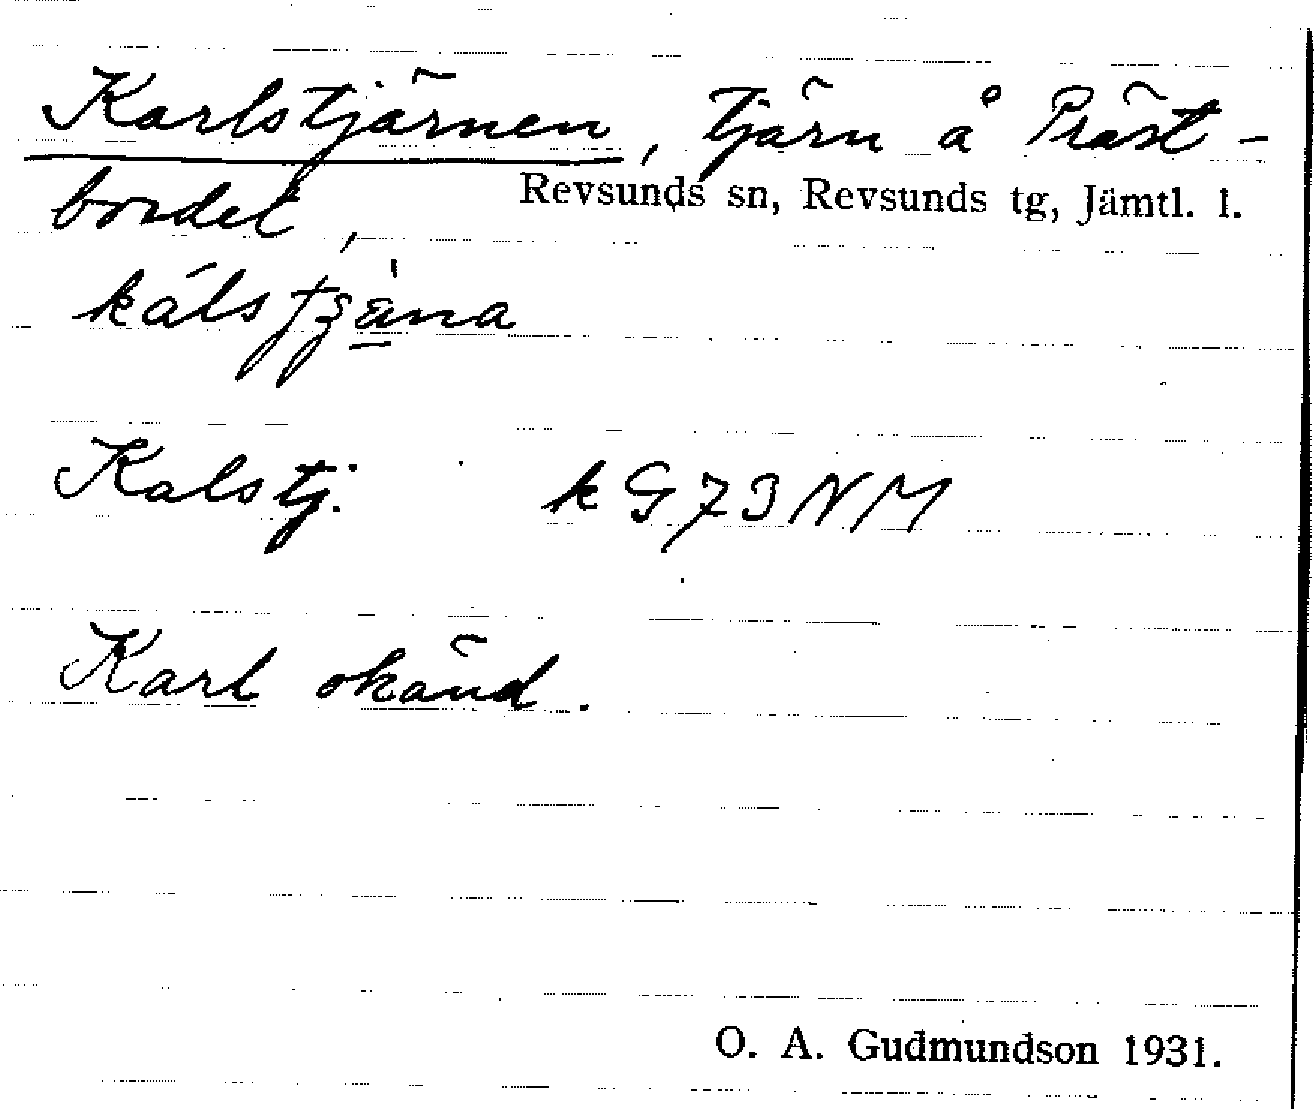 Karlstjärnen, tjärn å Präst-
bordet,
Revsunds sn, Revsunds tg, Jämtl. l.
Kalstj. k G73NM
Karl okänd.
O. A. Gudmundson 1931.